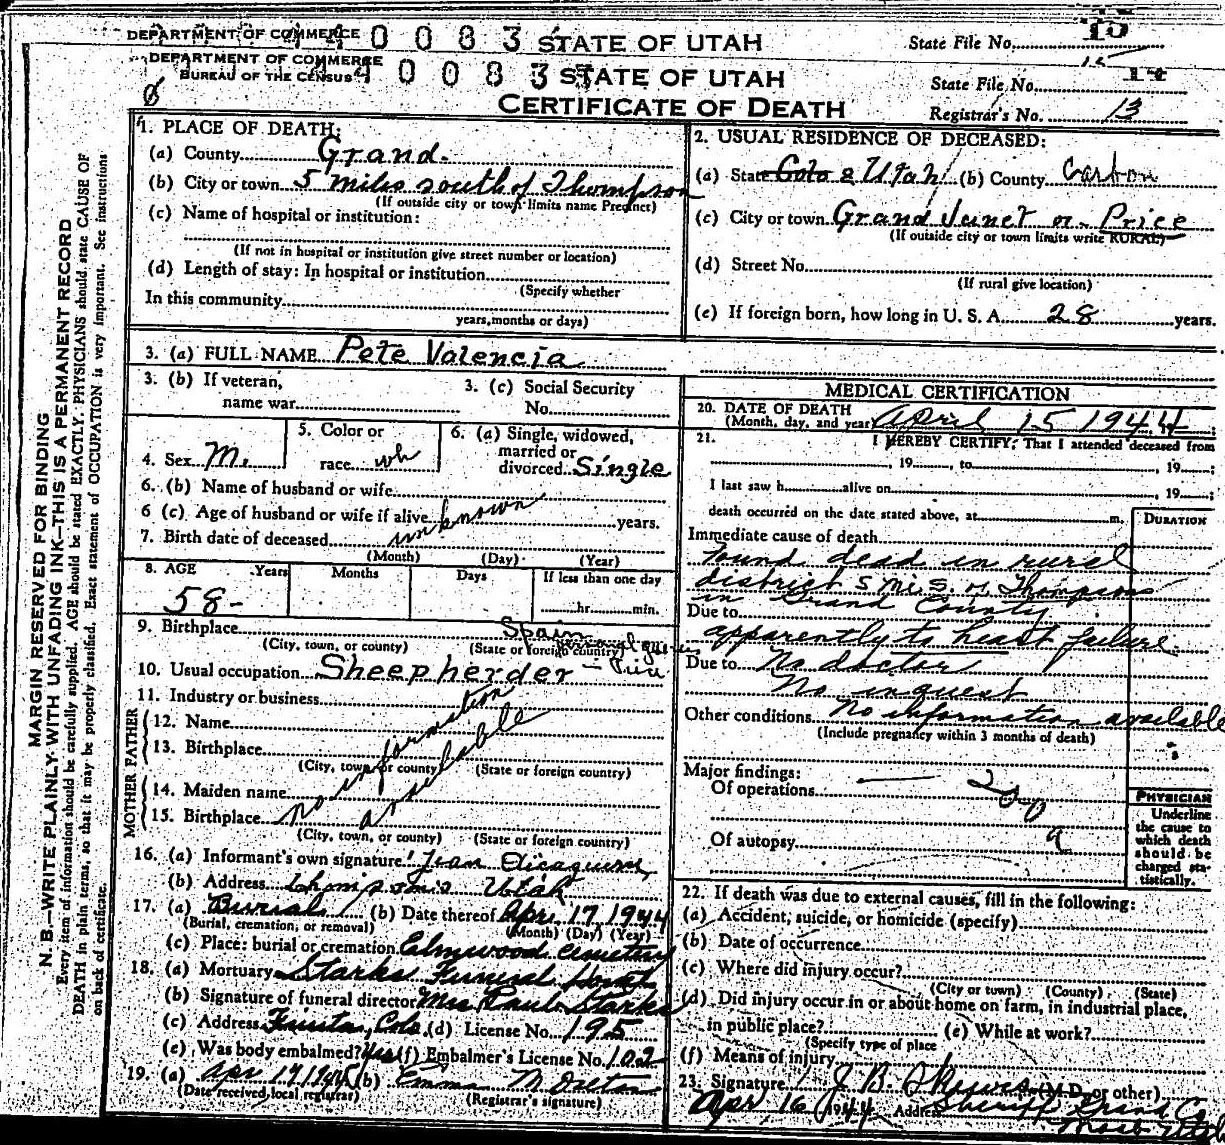 DEPARTMENT OF COMMERCE 0 0 8 3 STATE OF UTAH State File No.
DEPARTMENT OF COMMERCE
BUREAU OF THE CENSUS 0 0 8 3 STATE OF UTAH State File No. 14
CERTIFICATE OF DEATH Registrar's No. 13
MARGIN RESERVED FOR BINDING
N. B.—WRITE PLAINLY WITH UNFADING INK—THIS IS A PERMANENT RECORD
Every item of information should be carefully supplied. AGE should be stated EXACTLY. PHYSICIANS should state CAUSE OF
DEATH in plain terms, so that it may be properly classified. Exact statement of OCCUPATION is very important. See instructions
on back of certificate.
1. PLACE OF DEATH:
(a) County Grand
(b) City or town 5 miles south of Thompson
(If outside city or town limits name Precinct)
(c) Name of hospital or institution:
(If not in hospital or institution give street number or location)
(d) Length of stay: In hospital or institution
(Specify whether
In this community
years, months or days)
2. USUAL RESIDENCE OF DECEASED:
(a) State Colo Utah (b) County Carbon
(c) City or town Grand Junct or Price
(If outside city or town limits write RURAL)
(d) Street No.
(If rural give location)
(e) If foreign born, how long in U. S. A. 28 years.
3. (a) FULL NAME Pete Valencia
3. (b) If veteran,
name war
3. (c) Social Security
No.
4. Sex M.
5. Color or
race wh
6. (a) Single, widowed,
married or
divorced Single
6. (b) Name of husband or wife
6 (c) Age of husband or wife if alive years.
7. Birth date of deceased unknown
(Month) (Day) (Year)
8. AGE Years Months Days If less than one day
58- hr. min.
9. Birthplace Spain
(City, town, or county) (State or foreign country)
10. Usual occupation Sheepherder
11. Industry or business
FATHER
12. Name
13. Birthplace
(City, town or county) (State or foreign country)
MOTHER
14. Maiden name
15. Birthplace no information available
(City, town, or county) (State or foreign country)
16. (a) Informant's own signature Jean
(b) Address Thompsons Utah
17. (a) Burial (b) Date thereof Apr. 17 1944
(Burial, cremation, or removal) (Month) (Day) (Year)
(c) Place: burial or cremation Elmwood Cemetery
18. (a) Mortuary Starks Funeral Home
(b) Signature of funeral director Mrs Paul Starks
(c) Address Fruita, Colo. (d) License No. 195
(e) Was body embalmed? Yes (f) Embalmer's License No. 102
19. (a) Apr 17 (b) Emma M Dalton
(Date received, local registrar) (Registrar's signature)
MEDICAL CERTIFICATION
20. DATE OF DEATH
(Month, day, and year) April 15 1944
21. I HEREBY CERTIFY: That I attended deceased from
, 19 , to , 19 ;
I last saw h alive on , 19 ;
death occurred on the date stated above, at m.
DURATION
Immediate cause of death
Found dead in rural
district 5 mi. S. of Thompsons
in Grand County
Due to
apparently to heart failure
Due to No doctor
No inquest
Other conditions No information available
(Include pregnancy within 3 months of death)
Major findings:
Of operations
Of autopsy
PHYSICIAN
Underline
the cause to
which death
should be
charged sta-
tistically.
22. If death was due to external causes, fill in the following:
(a) Accident, suicide, or homicide (specify)
(b) Date of occurrence
(c) Where did injury occur?
(City or town) (County) (State)
(d) Did injury occur in or about home on farm, in industrial place,
in public place? (e) While at work?
(Specify type of place
(f) Means of injury
23. Signature J. B. Skewes (M.D. or other)
Apr 16 1944 Address Sheriff Grand Co
Moab Utah